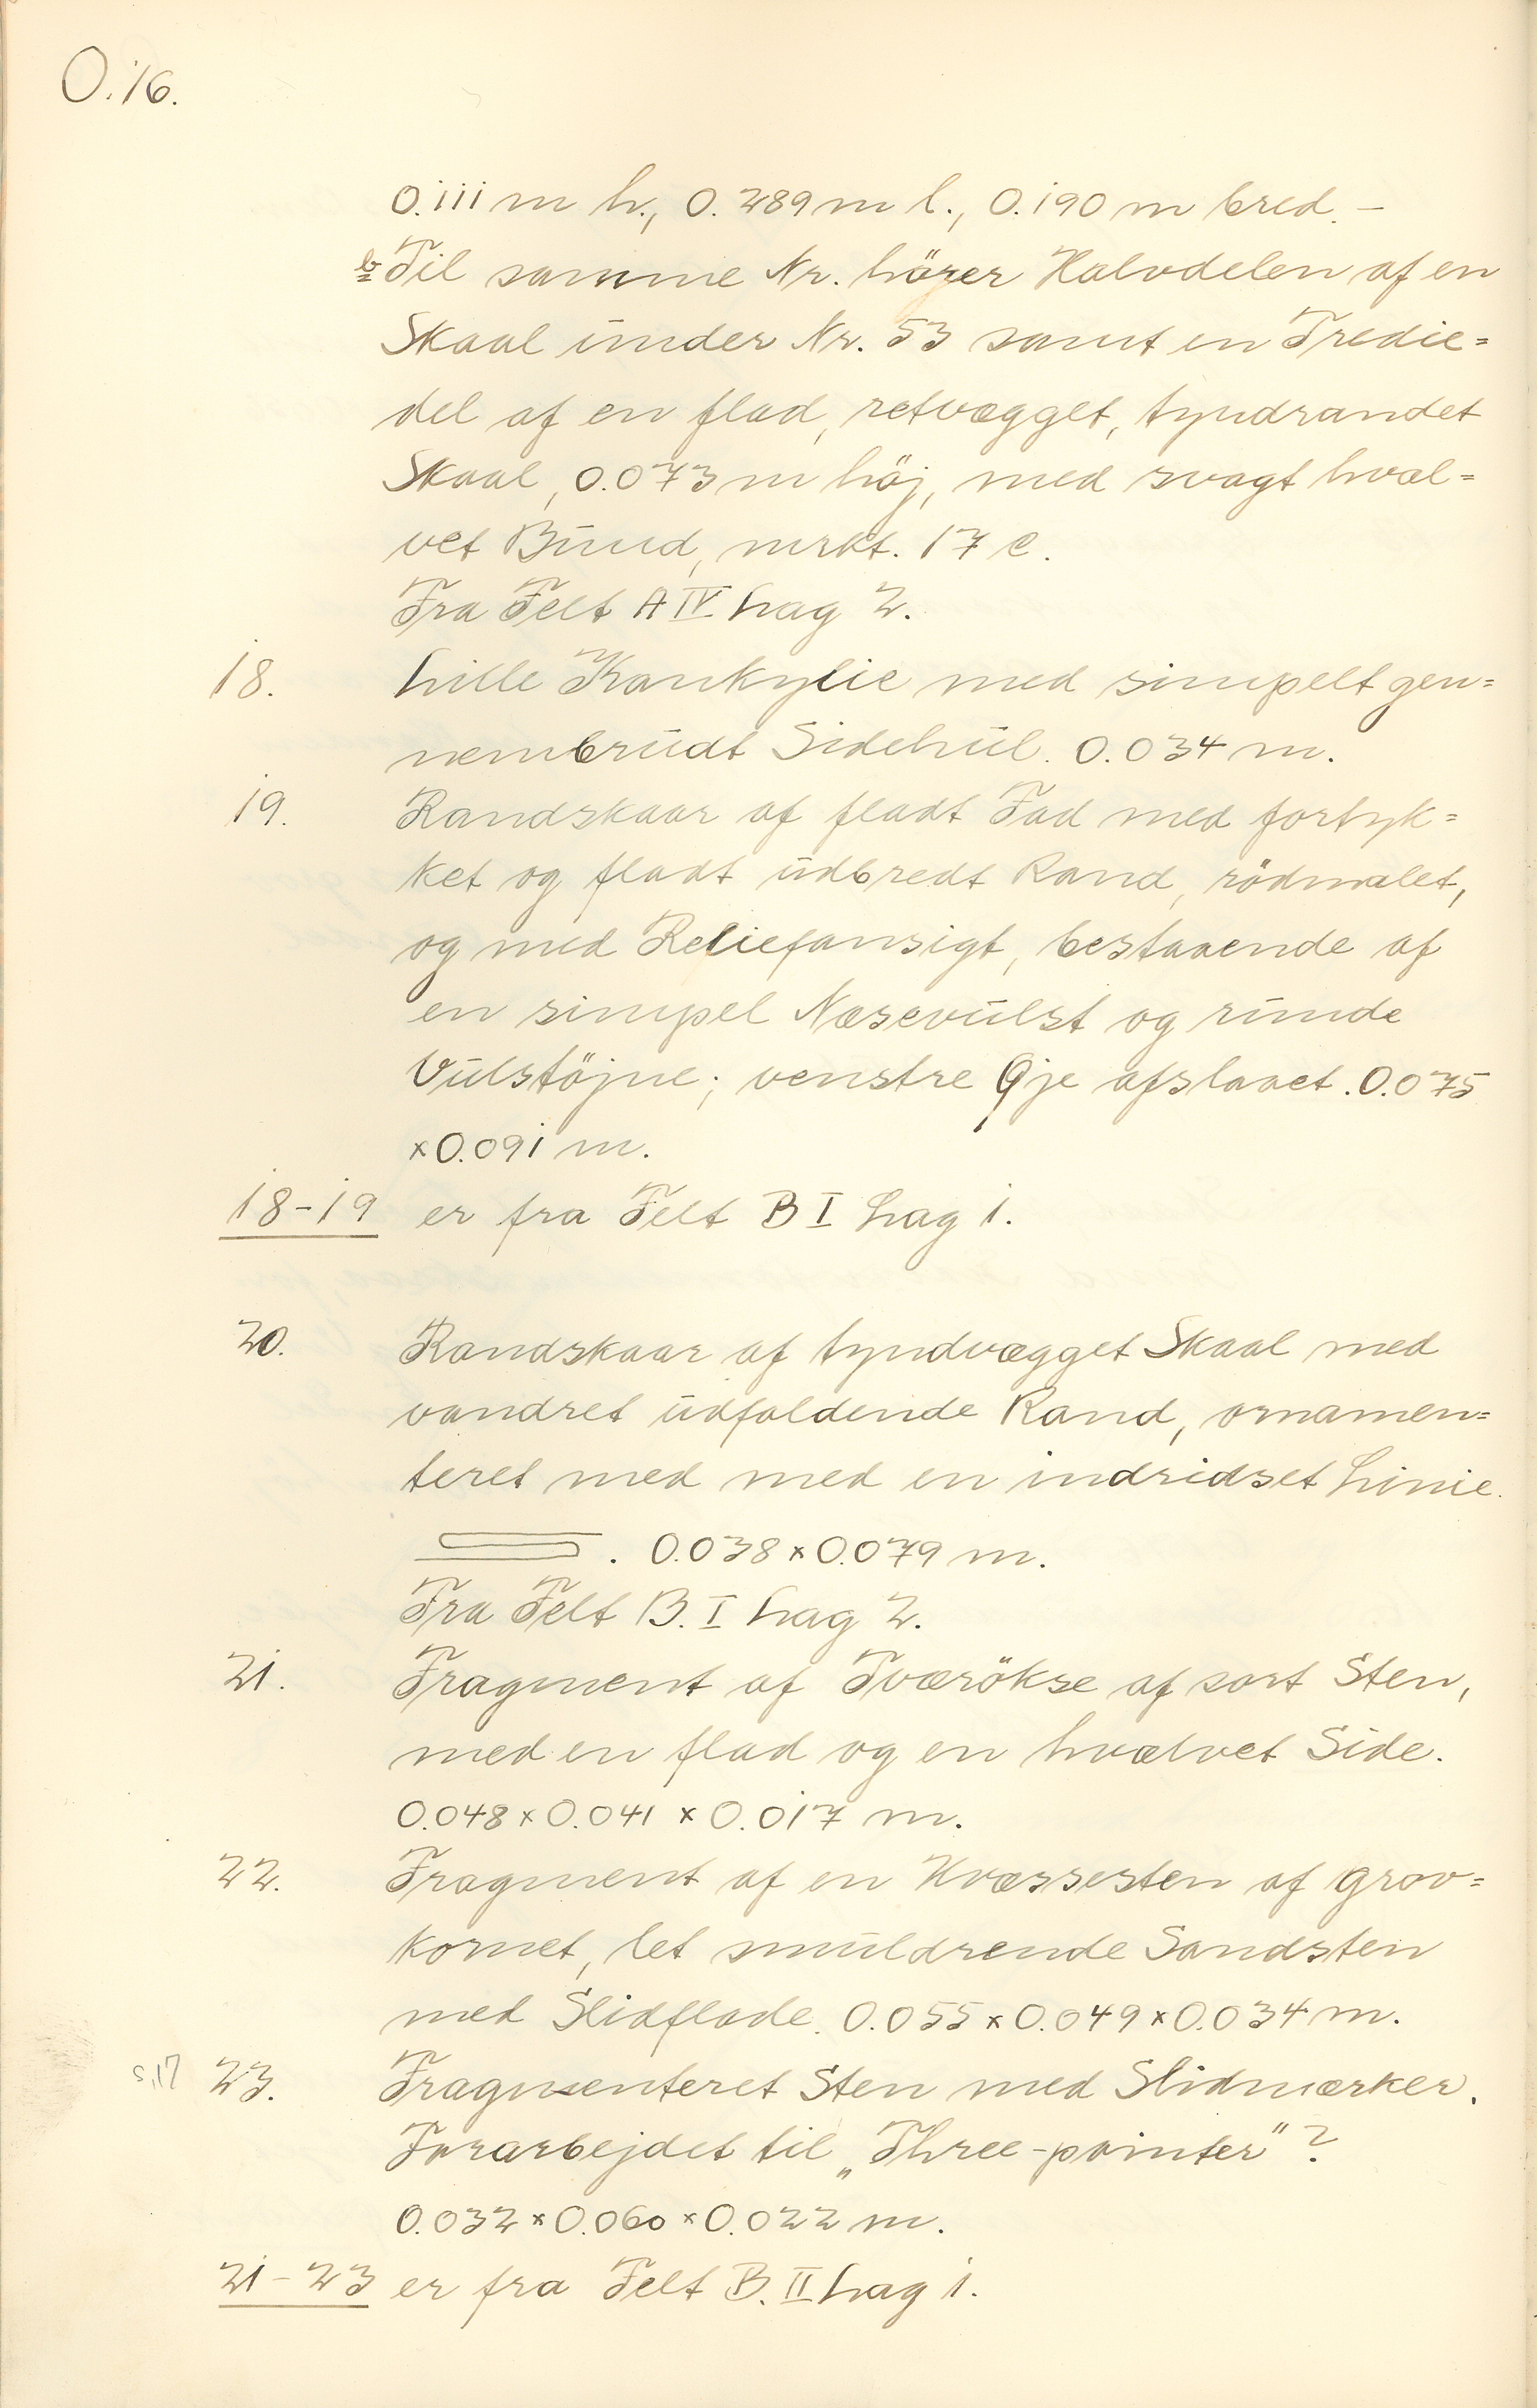 O.16.
0.111 m h., 0.289 m l., 0.190 m bred. –
b Til samme Nr. hörer Halvdelen af en
Skaal under Nr. 53 samt en Tredie=
del af en flad, retvægget, tyndrandet
Skaal, 0.073 m höj, med svagt hvæl=
vet Bund, mrkt. 17 c.
Fra Felt A IV Lag 2.
18. Lille Konkylie med simpelt gen=
nembrudt Sidehul. 0.034 m.
19. Randskaar af fladt Fad med fortyk=
ket og fladt udbredt Rand, rödmalet,
og med Reliefansigt, bestaaende af
en simpel Næsevulst og runde
Vulstöjne; venstre Øje afslaaet. 0.075
×0.091 m.
18–19 er fra Felt B I Lag 1.
20. Randskaar af tyndvægget Skaal med
vandret udfaldende Rand, ornamen=
teret med med en indridset Linie.
. 0.038×0.079 m.
Fra Felt B. I Lag 2.
21. Fragment af Tværökse af sort Sten,
med en flad og en hvælvet Side.
0.048×0.041×0.017 m.
22. Fragment af en Hvæssesten af grov=
kornet, let smuldrende Sandsten
med Slidflade. 0.055×0.049×0.034 m.
S.17 23. Fragmenteret Sten med Slidmærker.
Forarbejdet til „Three-pointer"?
0.032×0.060×0.022 m.
21–23 er fra Felt B. II Lag 1.